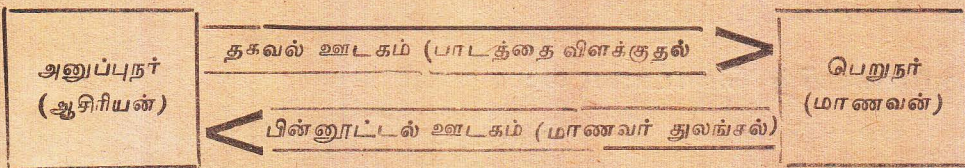 அனுப்புநர்
(ஆசிரியன்)
தகவல் ஊடகம் (பாடத்தை விளக்குதல்
பின்னூட்டல் ஊடகம் (மாணவர் துலங்சல்)
பெறுநர்
(மாணவன்)